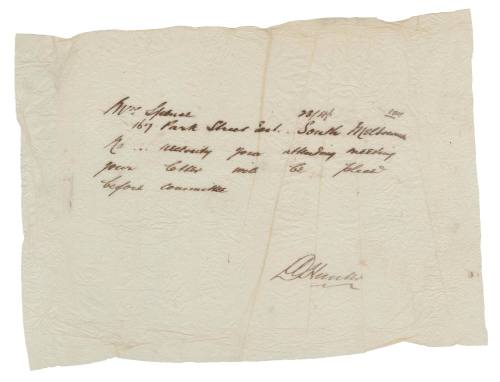 Mrs Spence
167 Park Street East .. South Melbourne
No .. necessity your attending meeting
your letter will be placed
before committee
D Hunter